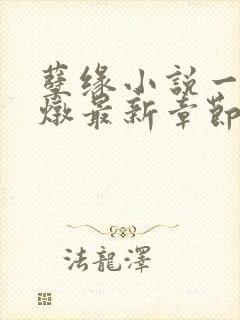 孽缘小說一
燉最新章節
法龍澤